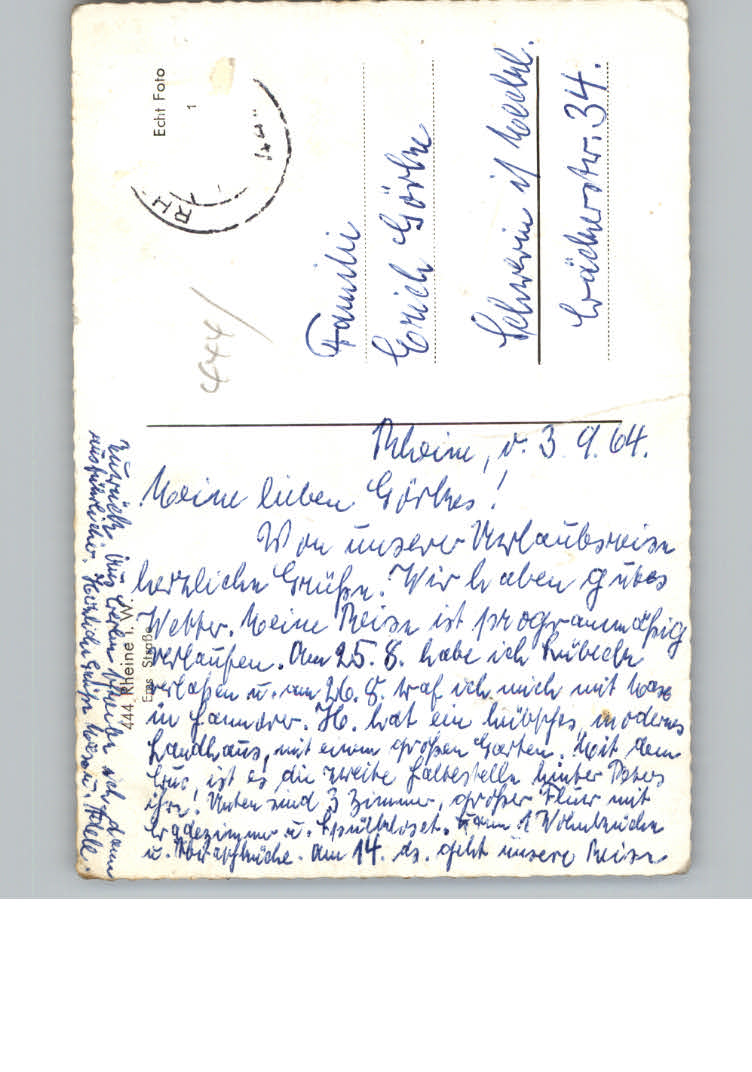 Echt Foto
1
RH
444
Familie
Erich Görke
Schwerin i/ Meckl.
Bäckerstr. 34.
Rheine, d. 3. 9. 64.
Meine lieben Görkes!
Von unserer Urlaubsreise
herzliche Grüße. Wir haben gutes
Wetter. Meine Reise ist programmäßig
verlaufen. Am 25. 8. habe ich
verlaßen u. am 26. 8. traf ich mich mit
in Hannover. H. hat ein hübsches, modernes
Landhaus, mit einem großen Garten. Mit dem
Bus, ist es die zweite Haltestelle hinter
Unten sind 3 Zimmer, großer Flur mit
Badezimmer u. Spülkloset. 1 Wohnküche
u. Waschküche. Am 14. ds. geht unsere Reise
zurück. Aus Berlin schreibe ich dann
ausführlicher. Herzliche Grüße u.
444 Rheine i. W.
Ems Straße